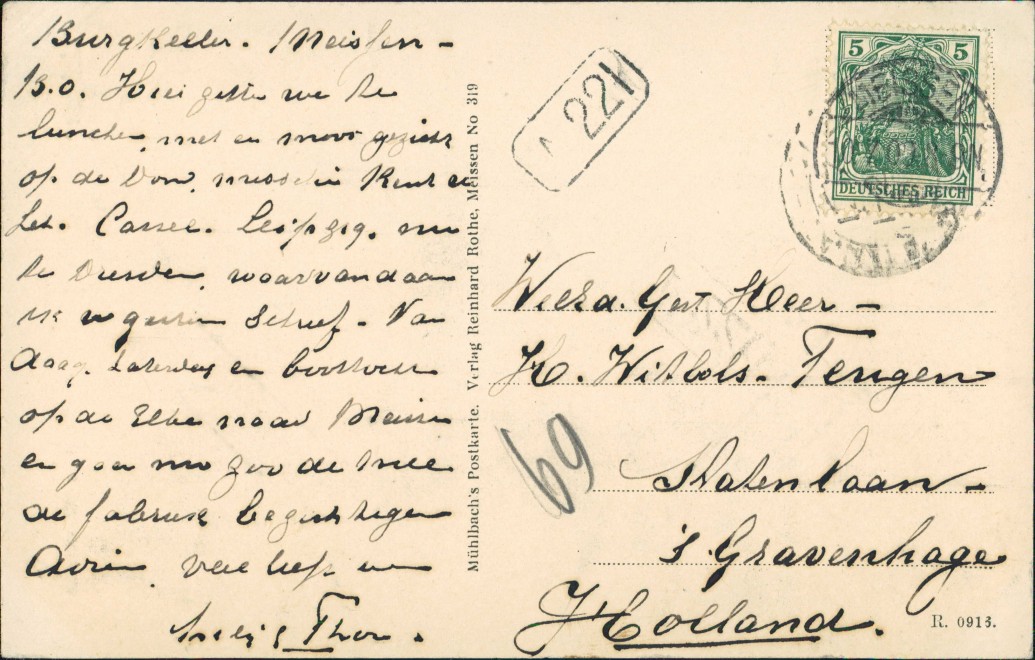 Burgkeller. Meissen -
B.O. Hier zitten we te
lunchen, met en mooi gezicht
op de Dom, misschien kent u
het. Cassel. Leipzig. nu
te Dresden, waarvandaan
ik u gisteren schreef. Van
daag, Saterdag en boottocht
op de Elbe naar Meissen
en gaan nu zoo de
de fabriek bezichtigen
Adieu, veel liefs van
Thor.
Mühlbach's Postkarte. Verlag Reinhard Rothe, Meissen No 319
22
5 5
DEUTSCHES REICH
Heer -
K. Witbols - Feugen
Statenlaan -
's Gravenhage
Holland.
69
R. 0913.